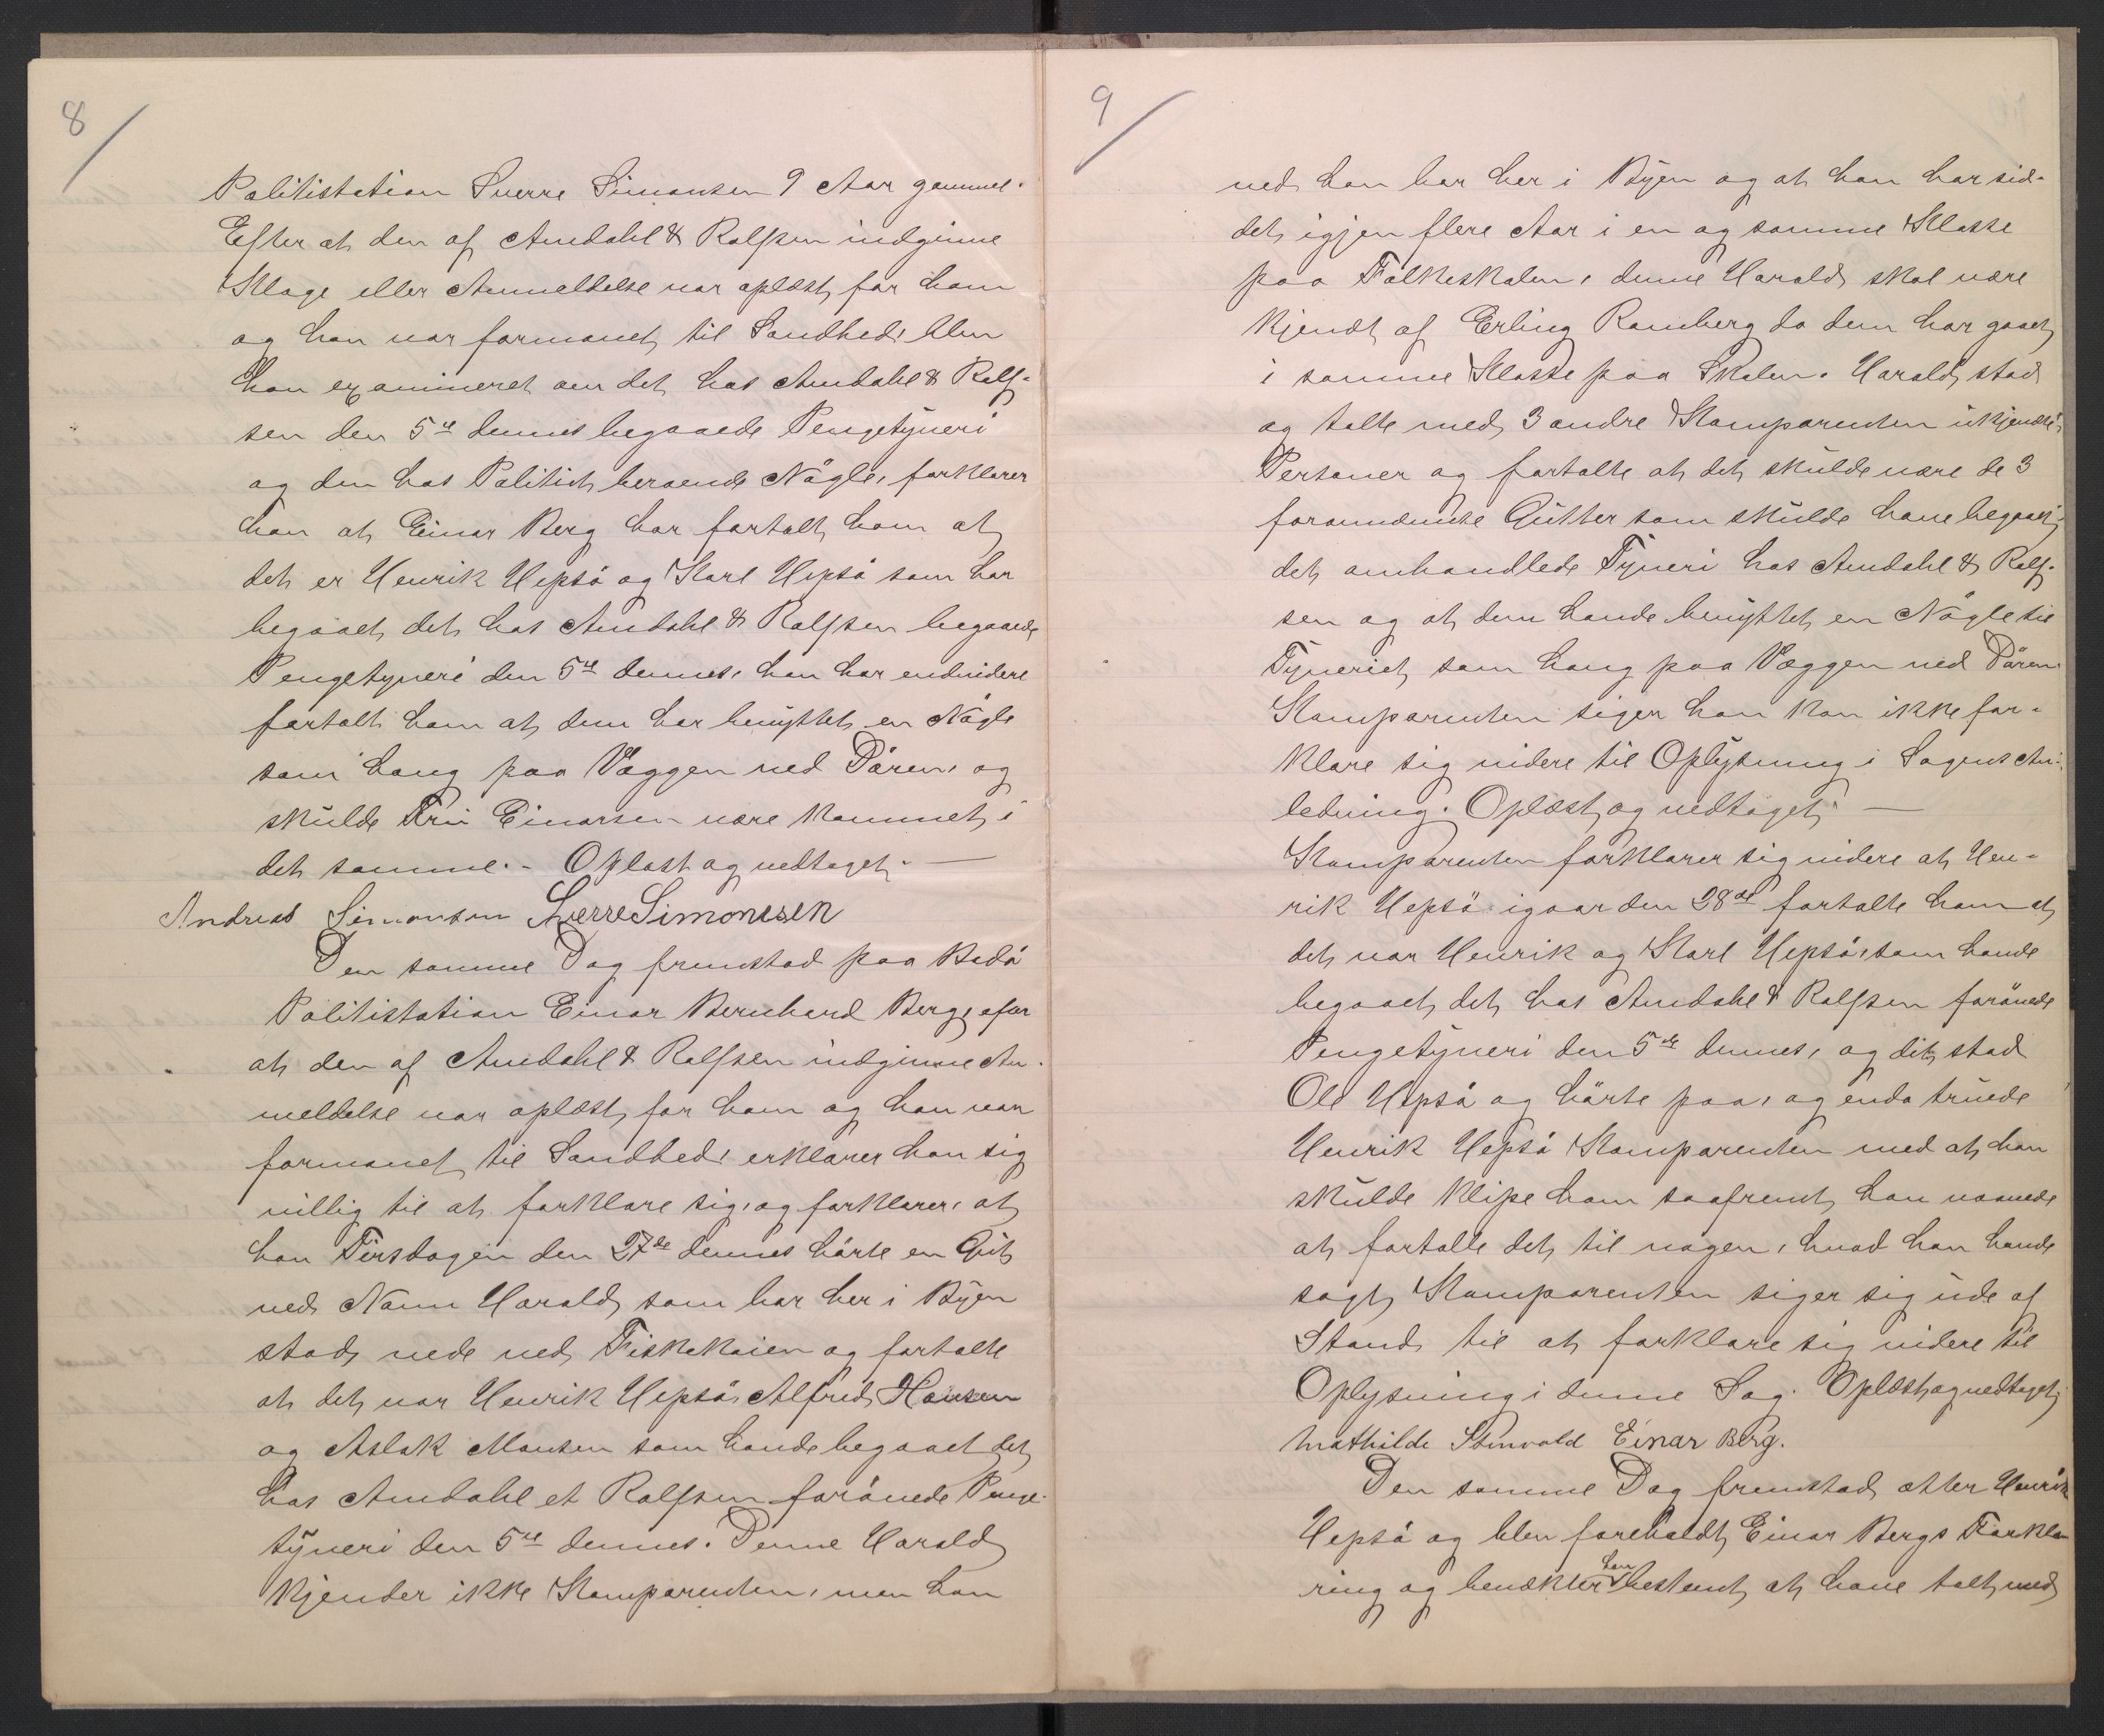 8
Politistation Sverre Simonsen 9 Aar gammel.
Efter at den af Amdahl & Rolfsen indgivne
Klage eller Anmeldelse var oplæst for ham
og han var formanet til Sandhed, blev
han examineret om det hos Amdahl & Rolf-
sen den 5te dennes begaaede Pengetyveri
og den hos Politiet beroende Nøgle, forklarer
han at Einar Berg har fortalt ham at
det er Henrik Hepsø og Karl Hepsø som har
begaaet det hos Amdahl & Rolfsen begaaede
Pengetyveri den 5te dennes, han har endvidere
fortalt ham at dem har benyttet en Nøgle
som hang paa Væggen ved Døren, og
skulde Fru Einarsen være kommet i
det samme. - Oplæst og vedtaget. —
Andreas Simonsen Sverre Simonsen
Den samme Dag fremstod paa Bodø
Politistation Einar Bernhard Berg, efter
at den af Amdahl & Rolfsen indgivne An-
meldelse var oplæst for ham og han var
formanet til Sandhed, erklærer han sig
villig til at forklare sig, og forklarer, at
han Tirsdagen den 27de dennes hørte en Gut
ved Navn Harald som bor her i Byen
stod nede ved Fiskekaien og fortalte
at det var Henrik Hepsø, Alfred Hansen
og Aslak Monsen som havde begaaet det
hos Amdahl et Rolfsen forøvede Penge-
tyveri den 5te dennes. Denne Harald
kjender ikke Komparenten, men han
9
ved han bor her i Byen og at han har sid-
det igjen flere Aar i en og samme Klasse
paa Folkeskolen, denne Harald skal være
kjendt af Erling Ramberg da dem har gaaet
i samme Klasse paa Skolen. Harald stod
og talte med 3 andre Komparenten ukjendte
Personer og fortalte at det skulde være de 3
forannævnte Gutter som skulde have begaaet
det omhandlede Tyveri hos Amdahl & Rolf-
sen og at dem havde benyttet en Nøgle til
Tyveriet som hang paa Væggen ved Døren
Komparenten siger han kan ikke for-
klare sig videre til Oplysning i Sagens An-
ledning. Oplæst og vedtaget. —
Komparenten forklarer sig videre at Hen-
rik Hepsø igaar den 28de fortalte ham at
det var Henrik og Karl Hepsø, som havde
begaaet det hos Amdahl & Rolfsen forøvede
Pengetyveri den 5te dennes, og dit stod
Ole Hepsø og hørte paa, og enda truede
Henrik Hepsø Komparenten med at han
skulde klipe ham saafremt han vaavede
at fortalte det til nogen, hvad han havde
sagt, Komparenten siger sig ude af
Stand til at forklare sig videre til
Oplysning i denne Sag. Oplæst og vedtaget
Mathilde Stenvold Einar Berg.
Den samme Dag fremstod atter Henrik
Hepsø og blev foreholdt Einar Bergs Forkla-
ring og benækter han bestemt at have talt med